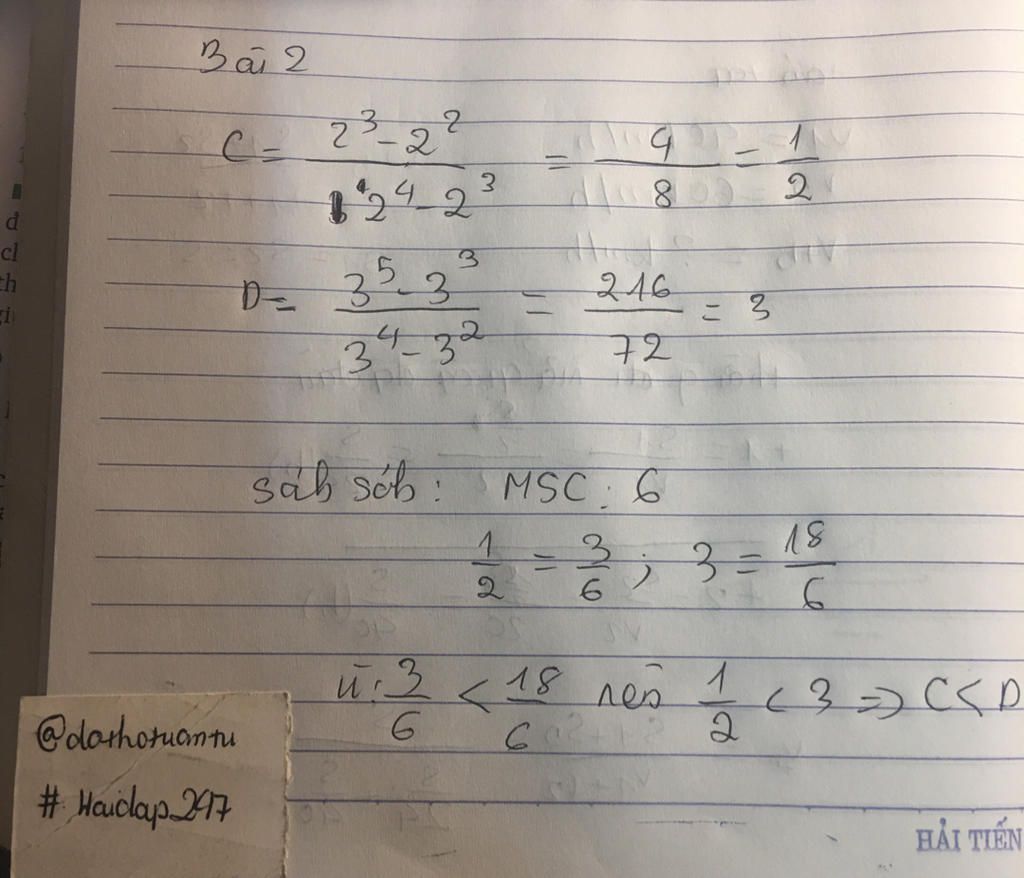 Bài 2
C = \frac{2^3 - 2^2}{2^4 - 2^3} = \frac{4}{8} = \frac{1}{2}
D = \frac{3^5 - 3^3}{3^4 - 3^2} = \frac{216}{72} = 3
MSC: 6
\frac{1}{2} = \frac{3}{6}; 3 = \frac{18}{6}
\frac{3}{6} < \frac{18}{6} \frac{1}{2} < 3 => C < D
# Hoidap_247
HẢI TIẾN